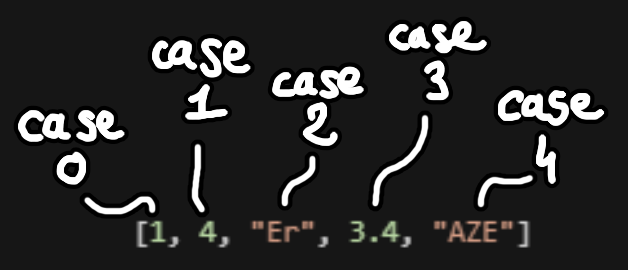 case
0
case
1
case
2
case
3
case
4
[1, 4, "Er", 3.4, "AZE"]